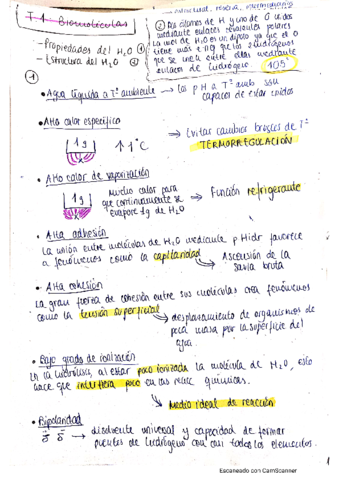 T.1 - Biomoléculas
- Propiedades del H₂O ①
- Estructura del H₂O ②
② Dos átomos de H y uno de O unidos
mediante enlaces covalentes polares
La molec de H₂O es un dipolo ya que el O
tiene más e⁻ que los 2 hidrógenos
que se unen entre ellos mediante
enlaces de hidrógeno.
105°
①
• Agua líquida a Tª ambiente → los pH a Tª amb son
capaces de estar unidos
• Alto calor específico
1g
↑ 1°C
→ Evitar cambios bruscos de Tª
TERMORREGULACIÓN
• Alto calor de vaporización
1g
Mucho calor para
que continuamente se
evapore 1g de H₂O
→ Función refrigerante
• Alta adhesión
La unión entre moléculas de H₂O mediante pHidr favorece
a fenómenos como la capilaridad
→ Ascensión de la
savia bruta
• Alta cohesión
La gran fuerza de cohesión entre sus moléculas crea fenómenos
como la tensión superficial
→ desplazamiento de organismos de
poca masa por la superficie del
agua
• Bajo grado de ionización
al estar poco ionizada la molécula de H₂O, esto
hace que interfiera poco en las reacc químicas.
→ Medio ideal de reacción
• Bipolaridad
→ disolvente universal y capacidad de formar
puentes de hidrógeno con casi todos los elementos.
1
Escaneado con CamScanner